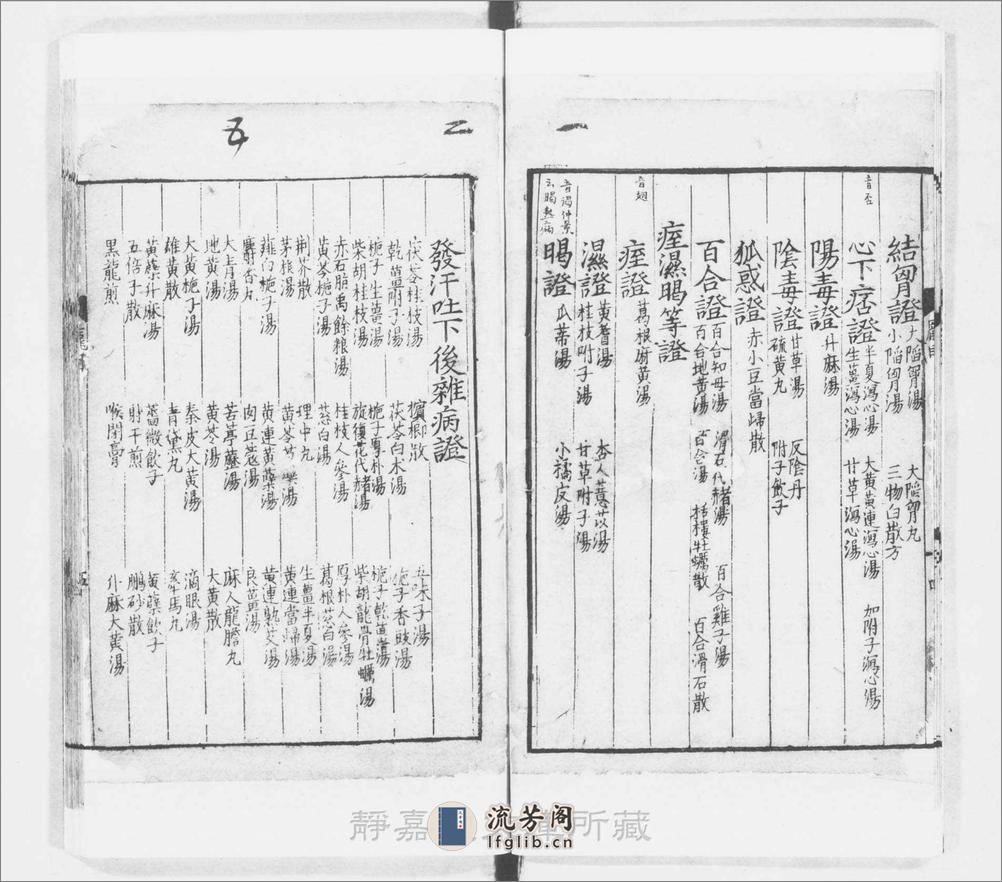 一
音否
音翅
音謁仲景
云暍熱病
結胷證 大陷胷湯 大陷胷丸
小陷胷湯 三物白散方
心下痞證 半夏瀉心湯 大黃黃連瀉心湯 加附子瀉心湯
生薑瀉心湯 甘草瀉心湯
陽毒證 升麻湯
陰毒證 甘草湯 反陰丹
硫黃丸 附子飲子
狐惑證 赤小豆當歸散
百合證 百合知母湯 滑石代赭湯 百合雞子湯
百合地黃湯 百合湯 括樓牡蠣散 百合滑石散
痙濕暍等證
痙證 葛根麻黃湯
濕證 黃耆湯 杏人薏苡湯
桂枝附子湯 甘草附子湯
暍證 瓜蒂湯 小橘皮湯
二
五
發汗吐下後雜病證
茯苓桂枝湯 檳榔散 五味子湯
乾薑附子湯 茯苓白朮湯 梔子香豉湯
梔子生薑湯 梔子厚朴湯 梔子乾薑湯
柴胡桂枝湯 旋復花代赭湯 柴胡龍骨牡蠣湯
赤石脂禹餘粮湯 桂枝人參湯 厚朴人參湯
黃芩梔子湯 葱白湯 葛根葱白湯
荆芥散 理中丸 生薑半夏湯
茅根湯 黃芩芍藥湯 黃連當歸湯
薤白梔子湯 黃連黃蘗湯 黃連熟艾湯
麝香丸 肉豆蔻湯 良薑湯
大青湯 苦葶藶湯 麻人龍膽丸
地黃湯 黃芩湯 大黃散
大黃梔子湯 秦皮大黃湯 滴眼湯
雄黃散 青黛丸 牽馬丸
黃蘗升麻湯 薔薇飲子 黃蘗飲子
五倍子散 射干煎 鵬砂散
黑龍煎 喉閉膏 升麻大黃湯
靜嘉
所藏
流芳阁
lfglib.cn